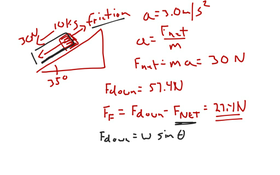 30N 10kg friction
35°
a = 3.0 m/s²
a = Fnet/m
Fnet = ma = 30 N
Fdown = 57.4N
FF = Fdown - FNET = 27.4N
Fdown = w sin θ